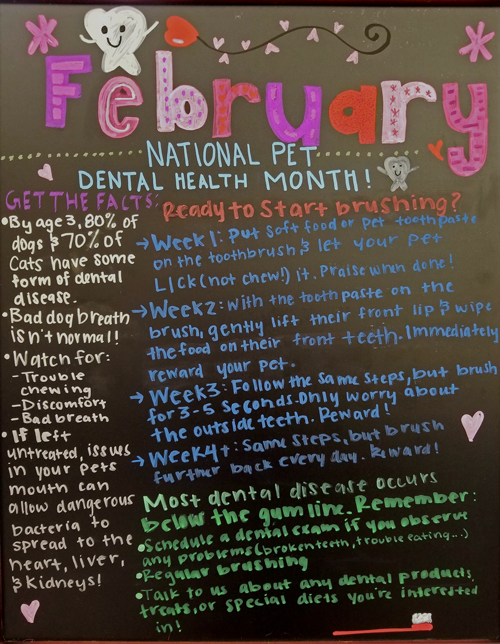 February
NATIONAL PET
DENTAL HEALTH MONTH!
GET THE FACTS:
•By age 3, 80% of
dogs & 70% of
Cats have some
form of dental
disease.
•Bad dog breath
isn't normal!
•Watch for:
-Trouble
chewing
-Discomfort
-Bad breath
•If left
untreated, issues
in your pets
mouth can
allow dangerous
bacteria to
spread to the
heart, liver,
& kidneys!
Ready to Start brushing?
→Week 1: Put soft food or pet toothpaste
on the toothbrush & let your pet
LICK (not chew!) it. Praise when done!
→Week 2: With the toothpaste on the
brush, gently lift their front lip & wipe
the food on their front teeth. Immediately
reward your pet.
→Week 3: Follow the same steps, but brush
for 3-5 seconds. Only worry about
the outside teeth. Reward!
→Week 4+: Same steps, but brush
further back every day. Reward!
Most dental disease occurs
below the gumline. Remember:
•Schedule a dental exam if you observe
any problems (broken teeth, trouble eating...)
•Regular brushing
•Talk to us about any dental products,
treats, or special diets you're interested
in!